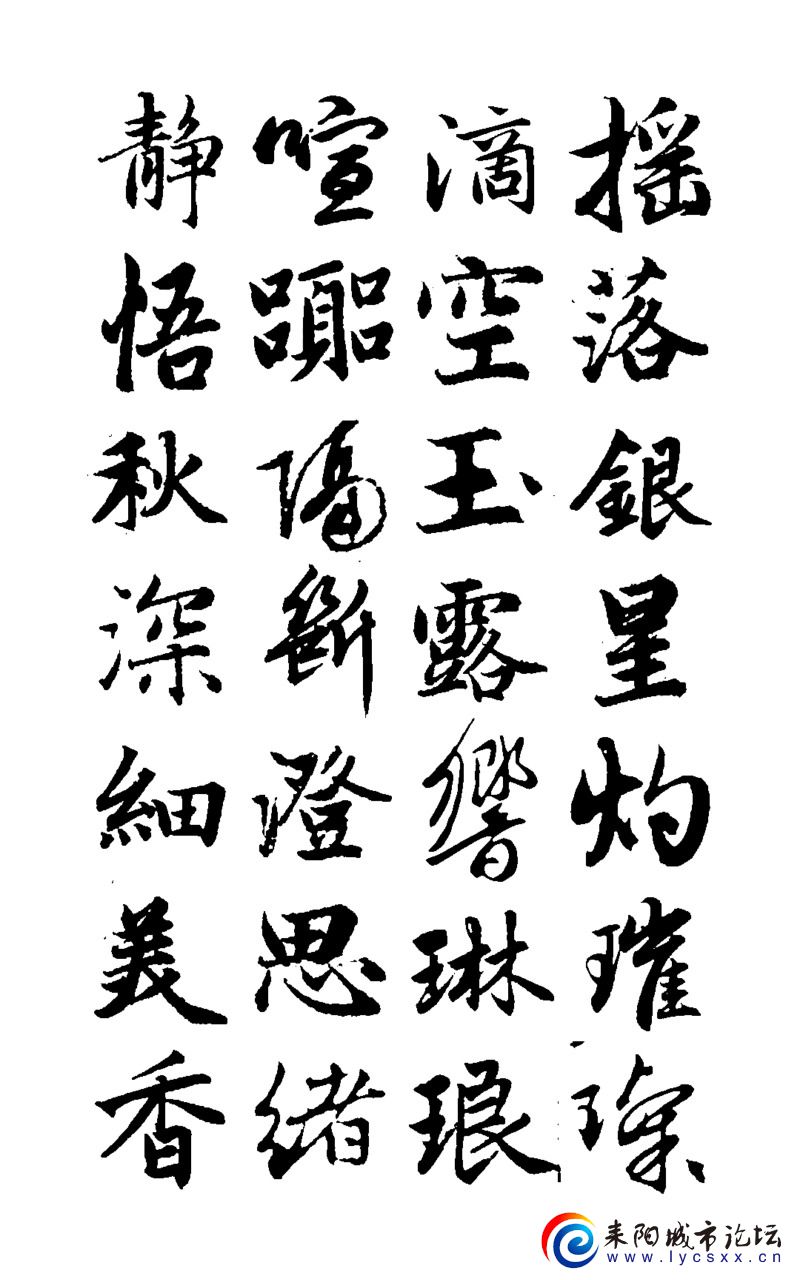 搖落銀星灼璀璨
滴空玉露響琳琅
喧囂隔斷澄思緒
靜悟秋深細美香
耒阳城市论坛
www.lycsxx.cn